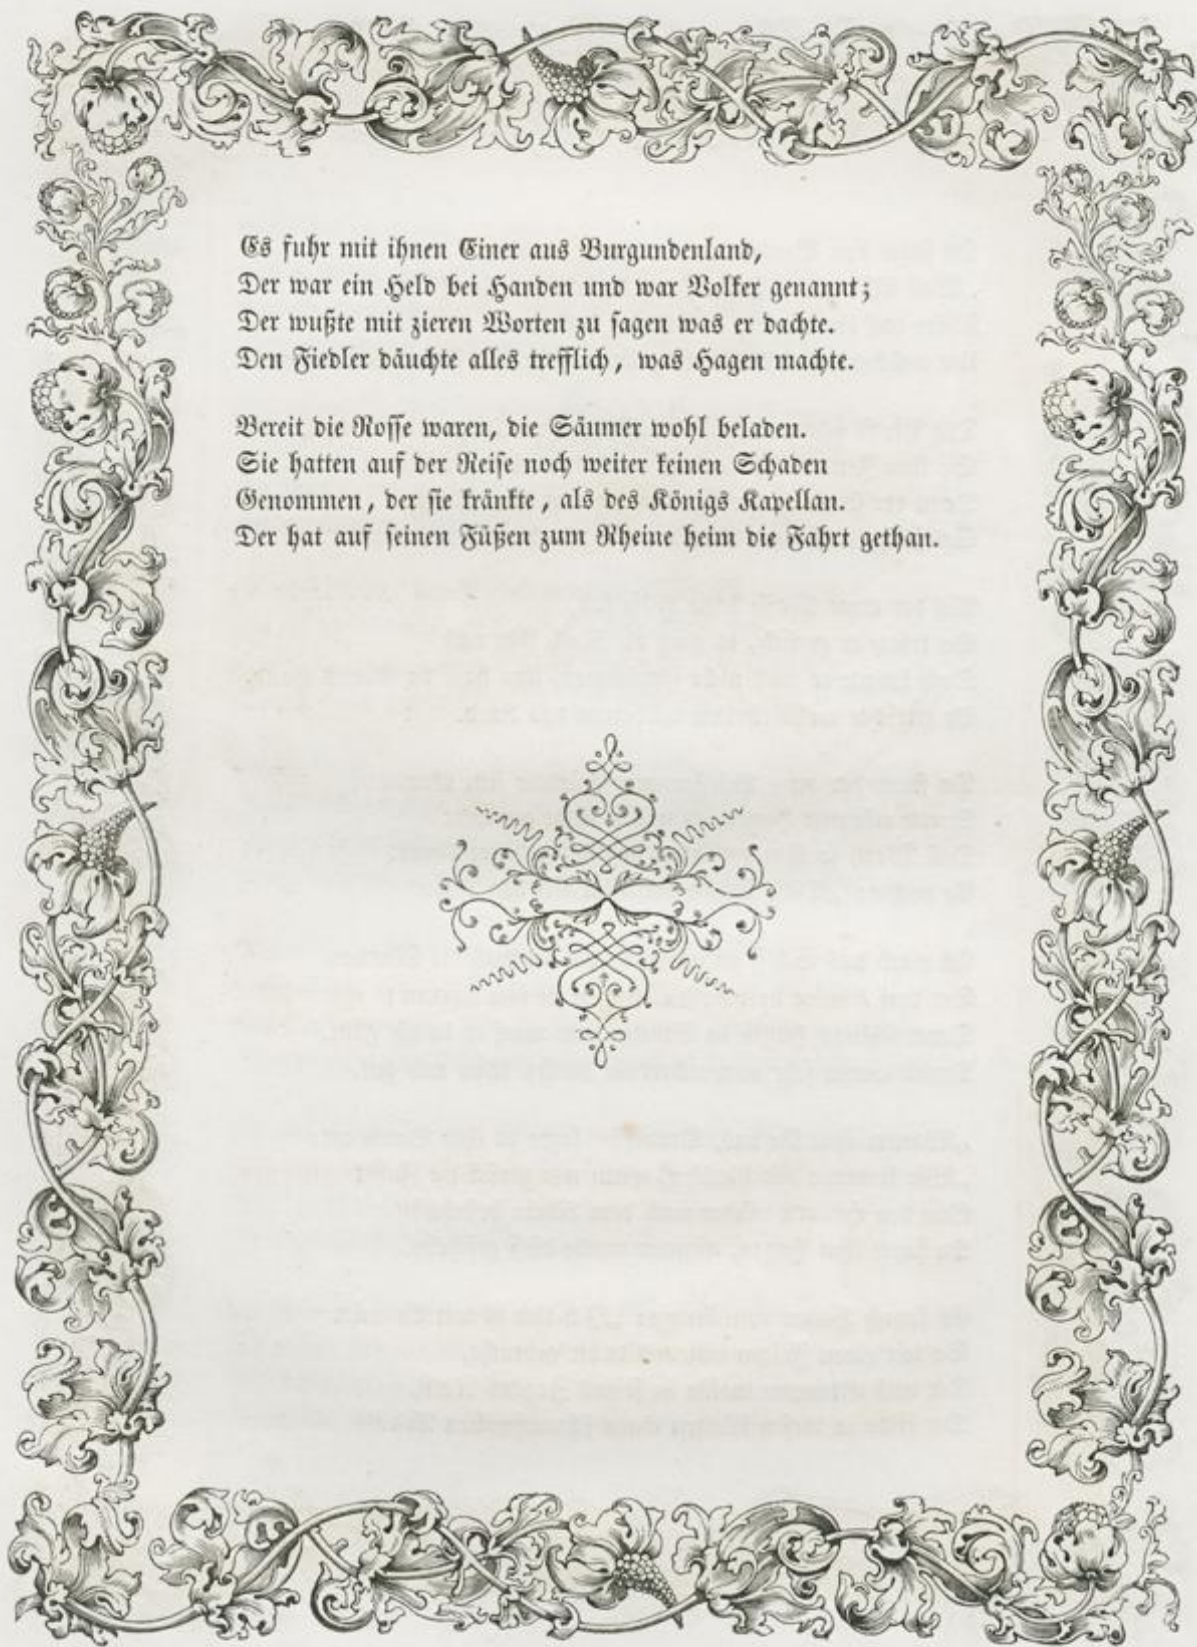 Es fuhr mit ihnen Einer aus Burgundenland,
Der war ein Held bei Handen und war Volker genannt;
Der wußte mit zieren Worten zu sagen was er dachte.
Den Fiedler däuchte alles trefflich, was Hagen machte.

Bereit die Rosse waren, die Säumer wohl beladen.
Sie hatten auf der Reise noch weiter keinen Schaden
Genommen, der sie kränkte, als des Königs Kapellan.
Der hat auf seinen Füßen zum Rheine heim die Fahrt gethan.